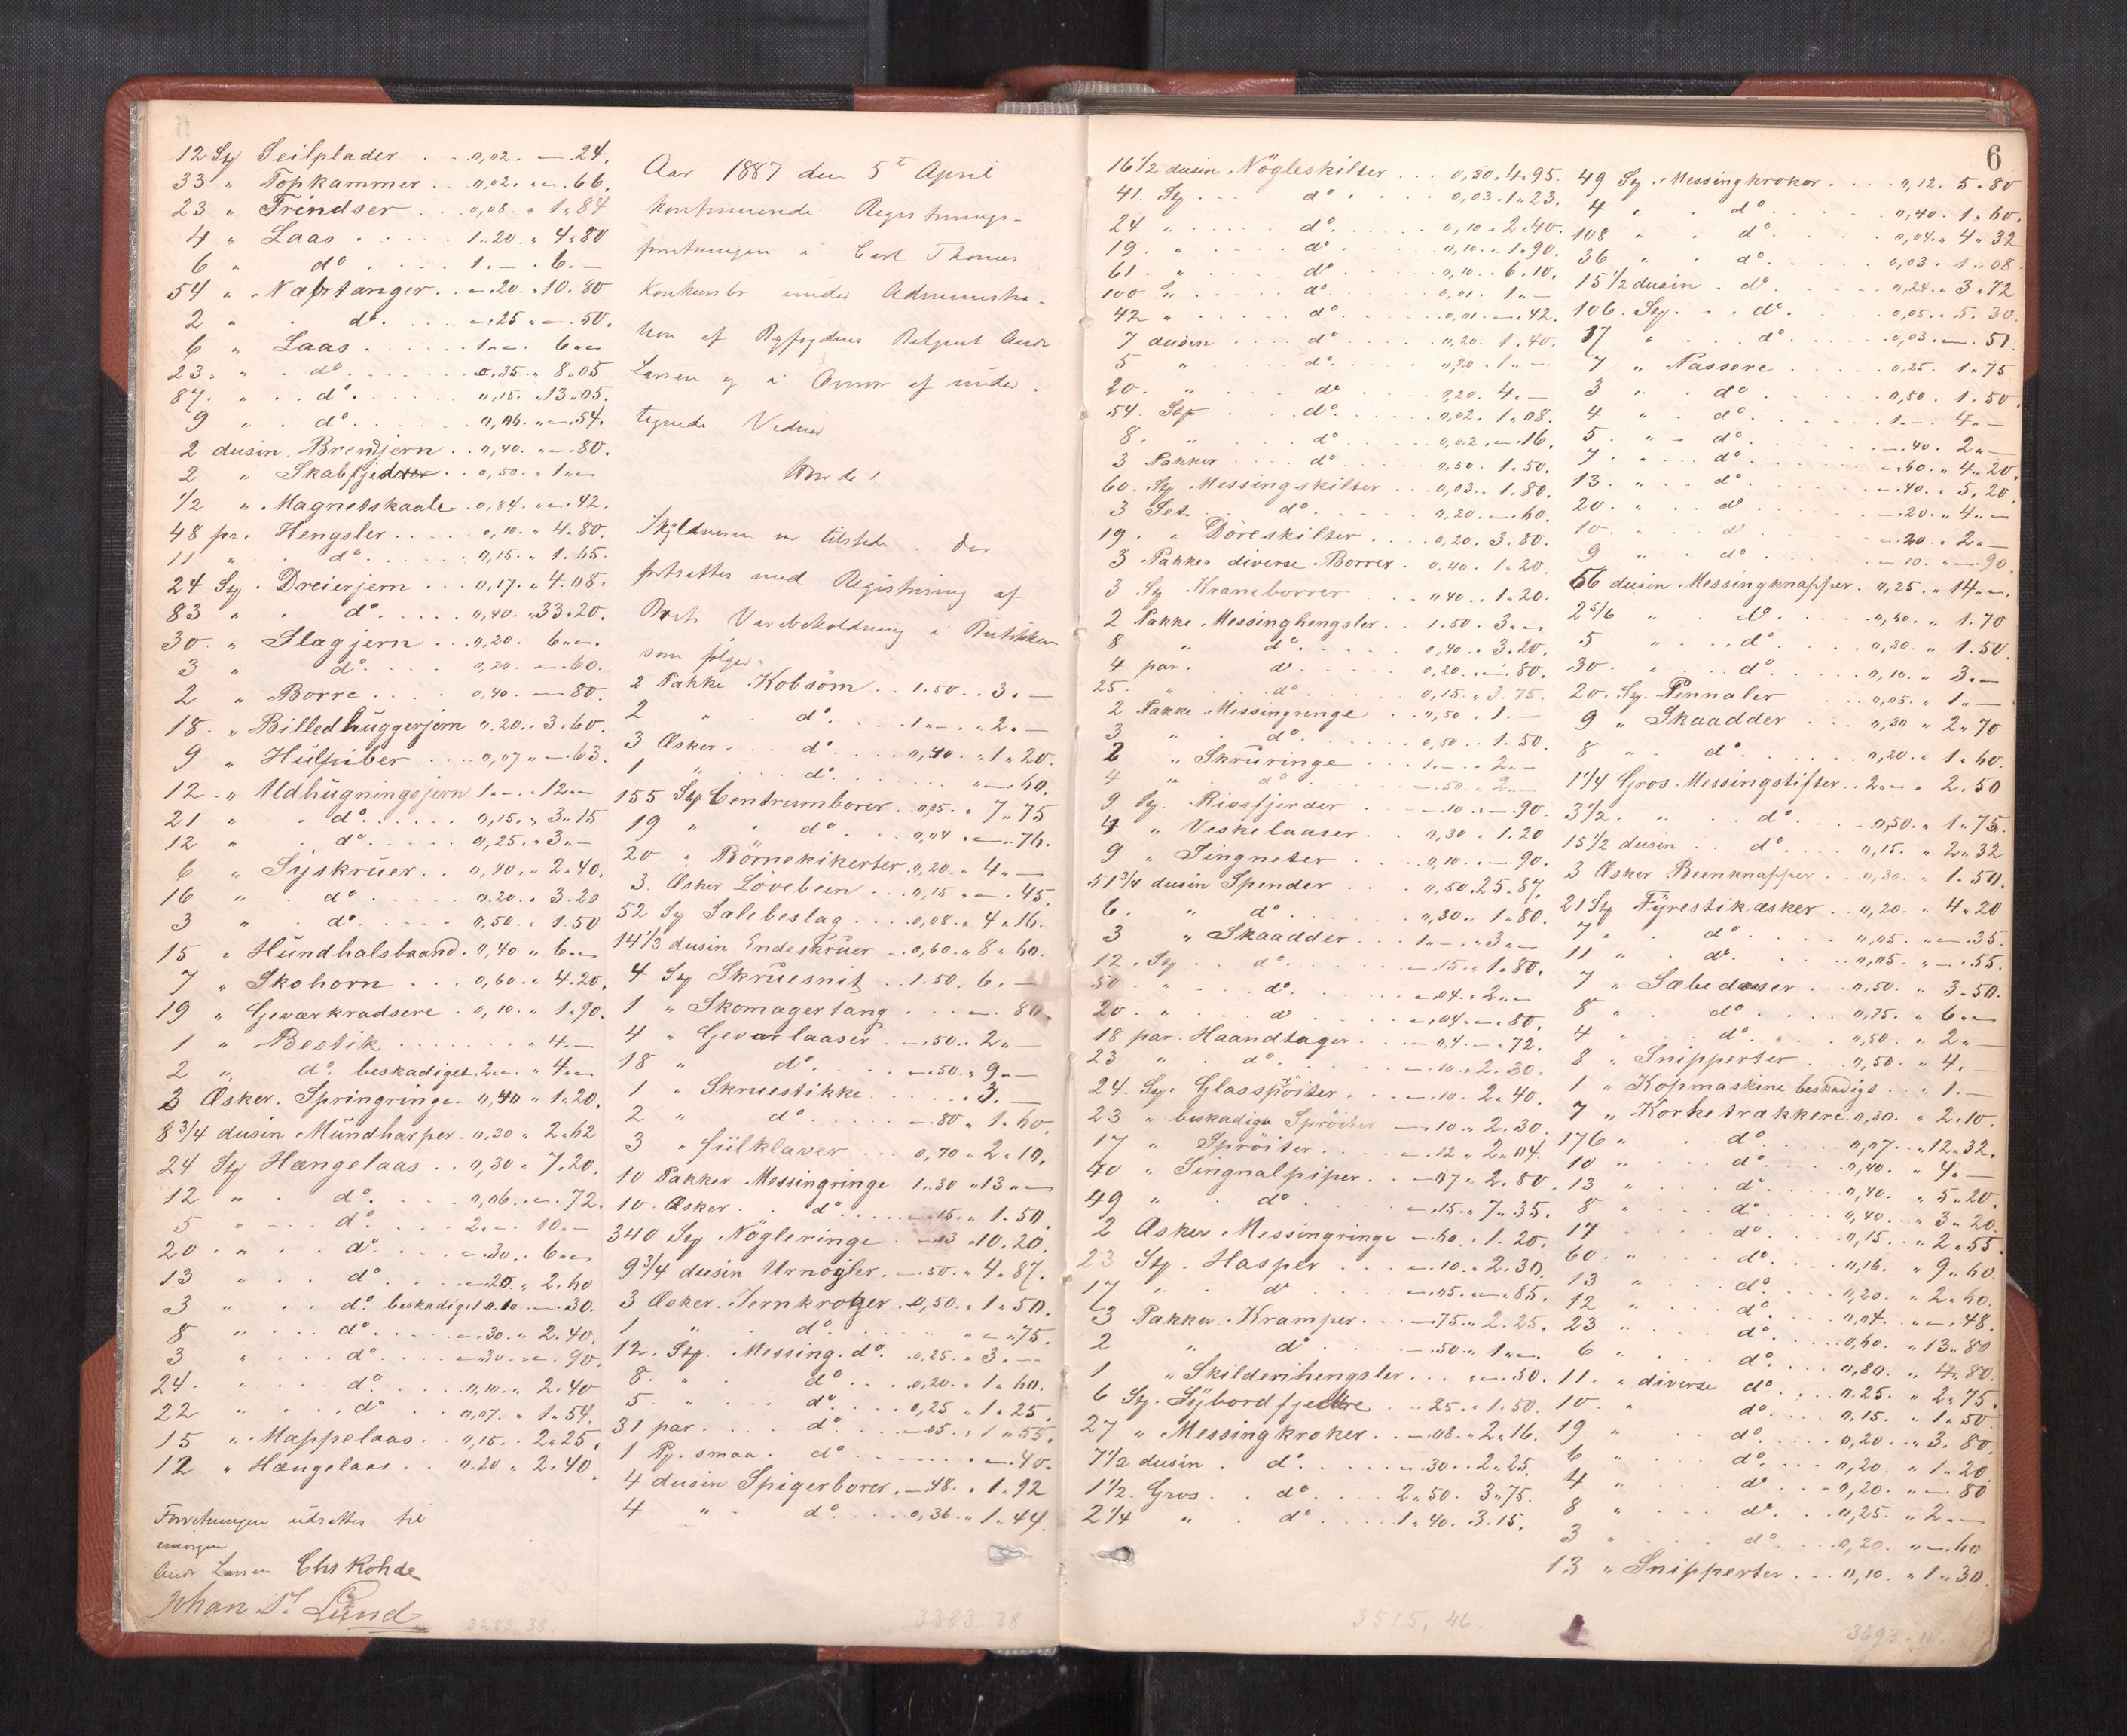 12 Sty Seilplader . . 0,02. — 24.
33 " Topkammer . . 0,02. " — .66.
23 " Trindser . . . 0,08. " 1.84
4 " Laas . . . . . 1.20. " 4.80
6 " do . . . . 1. — . 6. —
54 " Næbtanger . . — .20. " 10.80
2 " . do. . . . — .25 " — .50.
6 " Laas . . . . . 1. — . 6. —
23. " . do . . . . . 0,35. " 8.05
87. " . . do. . . . . 0,15. " 13.05.
9 " . do . . . . . 0,06. " — .54.
2 dusin Brendjern . . 0,40. " — .80.
2 " Skabfjedrer . . 0,50. " 1. —
1/2 " Magnetskaale . 0,84. " — .42.
48 pr. Hengsler . . . . . 0,10. " 4.80.
11 " . do . . . . . 0,15. " 1.65.
24 Sty . Dreierjern . . . 0,17. " 4.08.
83 " . do. . . . . 0,40. " 33.20.
30. " Slagjern . . . 0,20. 6. —
3 " do. . . . 0,20. — .60.
2 " Borre . . . . 0,40. — 80.
18. " Billedhuggerjern 0,20. . 3.60.
9 " Hulpiber . . . . 0,07 " — .63.
12. " Udhugningsjern 1. — . 12. —
21 " . do. . . . . . 0,15. " 3.15
12 " . do. . . . . 0,25. " 3. —
6 " Syskruer . . 0,40. " 2.40.
16 " do . . . . . 0.20. . 3.20
3 " do. . . . . 0,50. . 1.50
15 " Hundhalsbaand . 0,40 " 6. —
7 " Skohorn . . . 0,60. " 4.20.
19 " Geværkradsere . 0,10. " 1.90.
1 " Bestik . . . . . . . " 4. —
2 " do. beskadiget. 2. — " 4. —
3 Æsker . Springringe . 0,40 " 1.20.
8 3/4 dusin Mundharper . 0,30 " 2.62
24 Sty Hængelaas . . 0,30 " 7.20.
12 " . do. . . . 0,06. — .72.
5 " . . do. . . . 2. — . 10. —
20. " . . do. . . . — .30. . 6. —
13 " . . do. . . . — .20. " 2.60
3 " . . do. beskadiget 0.10 — .30.
8 " . . . do. . . . . — .30. " 2.40.
3 " . . . do. . . . — .30. " — .90.
24. " . . . do. . . . 0,10. " 2.40
22 " . . . do . . . . 0,07. " 1.54.
15 " Mappelaas . . 0,15. . 2.25.
12 " Hængelaas . . 0.20 " 2.40.
Forretningen udsattes til
imorgen
Andr Larsen Chs Rohde
Johan St Lund
3288.38.
Aar 1887 den 5te April
kontinuerede Registrerings-
forretningen i Carl Thomes
Konkursbo under Administra-
tion af Byfogdens Betjent Andr
Larsen og i Overvær af under-
tegnede Vidner
Hvorda!
Skyldneren var tilstede. Der
fortsattes med Registrering af
Boets Varebeholdning i Butikken
som følger.
2 Pakke Kobsöm . . 1.50. . 3. —
2 " . do. . . . 1. — . " 2. —
3 Æsker . . . do . . . . 0,40. " 1.20.
1 " . . . do . . . . . . . . " — .60.
155 Sty Centrumborer . . 0,05. " 7.75
19 " . do . . . 0,04 " — .76.
20. " Börnekikerter 0,20. " 4. —
3. Æsker Lövebeen . . . 0,15 " — .45.
52 Sty Salebeslag . . . . 0,08. " 4.16.
14 1/3 dusin Endeskruer . . 0,60. " 8.60.
4 Sty Skruesnit . . 1.50. 6. —
1 " Skomagertang . . . — . 80.
4 " Geværlaaser . . — .50. . 2. —
18 " do. . . . — .50. " 9. —
1 " Skruestikke . . . . . . 3. —
2 " do . . . . . — .80 " 1.60.
3 " fiilklaver . . . 0,70 " 2.10.
10 Pakker Messingringe 1.30 " 13. —
10. Æsker . . do . . . . — .15. " 1.50.
340 Sty Nögleringe . . — .03 " 10.20.
9 3/4 dusin Urnøgler . — .50. " 4.87.
3 Æsker . Jernkroger . 0,50. " 1.50.
1 " . do. . . . . . . " — .75.
12. Sty. Messing. do. . 0,25. " 3. —
8. " . . do . . . . 0,20. " 1.60.
5. " . . . do. . . . 0,25 " 1.25.
31 par . . . . do. . . . — .05. " 1.55.
1 Pg. smaa . do . . . . . . . — .40.
4 dusin Spigerborer . — .48. " 1.92
4 " . do. . . . 0,36. " 1.44.
3383.38
16 1/2 dusin Nögleskilter . . . 0,30. 4.95.
41. Sty . . . do . . . . 0,03. 1.23.
24 " . . . . . do. . . . . . 0,10. 2.40.
19. " . . . . do . . . . . 0,10. " 1.90.
61. " . . . . do . . . . . 0,10. . 6.10.
100 " . . . . . do . . . . . 0,01. 1. —
42 " . . . . . do . . . . . 0,01. — .42.
7 dusin . . . do . . . . . 0,20. 1.40.
5 " . . . . do. . . . . . 0,20. 1. —
20. " . . . . do . . . . . 0,20. 4. —
54. Sty . . . . do. . . . . 0,02. 1.08.
8. " . . . . do . . . . . 0,02. — .16.
3 Pakker . . . do . . . . . 0,50. 1.50.
60. Sty Messingskilter . . . 0,03. . 1.80.
3 Set . . . do . . . . . 0,20. — .60.
19. " Döreskilter . . . . 0,20. 3.80.
3 Pakker diverse Borrer . 0,40. 1.20.
3 Sty Kraneborrer . . . " 40. . 1.20.
2 Pakke Messinghengsler . . 1.50. 3. —
8 " do. . . . . . 0,40. . 3.20.
4 par. do . . . . . 0,20. — .80.
25. " . do . . . . . 0,15. " 3.75.
2 Pakke Messingringe . . 0,50. 1. —
3 " . . do . . . . . 0,50. . 1.50.
2 " Skruringe . . . 1. — . 2. —
4 " do . . . . . — .50. 2. —
9 Sty. Rissfjerder . . — .10. — .90.
4 " Veskelaaser . . 0,30 " 1.20
9 " Singneter . . . . 0,10. . — .90.
51 3/4 dusin Spender . . . 0,50. 25.87.
6. " do . . . . . . 0,30. " 1.80.
3 " Skaadder . . . . 1. — . " 3. —
12. Sty . . do. . . . . — .15. " 1.80.
50. " . . do. . . . . — .04. " 2. —
20. " . . do . . . . . — .04 — .80.
18 par. Haandtager . . . — 0,4 — .72.
23 " . do. . . . . — .10. . 2.30.
24. Sty. Glasspröiter . . . — .10. 2.40.
23 " beskadige Spröiter — .10. " 2.30.
17 " Spröiter . . . . — .12 " 2.04.
40 " Singnalpiper . . — 07 " 2.80.
49 " . do . . . . . — .15. " 7.35.
2 Æsker Messingringe — .60. . 1.20.
23 Sty . Hasper . . . . — .10. . 2.30.
17 " . do . . . . . — .05. — .85.
3 Pakker Kramper . . . — 75. " 2.25.
2 " do . . . . . — .50. " 1. —
1 " Skilderihengsler . . . " — .50.
6 Sty. Sybordfjedre . . 25. . 1.50.
27 " Messingkroker . . — .08. . 2.16.
7 1/2 dusin . do. . . . — .30. . 2.25.
1 1/2. Gros . . do . . . . 2.50. 3.75.
2 1/4 " . do. . . . 1.40. 3.15.
3515,46.
6
49 Sty. Messingkroker . . . . 0,12. 5.80
4 " . do. . . . . . 0,40. 1.60.
108 " . do . . . . . . 0,04. " 4.32
36 " . do. . . . . . 0,03. 1.08.
15 1/2 dusin . do. . . . . 0,24. " 3.72
106. Sty. . . do. . . . . 0,05. . 5.30.
17 " . . . do. . . . . 0,03. — .51.
7 " Passere . . . . . 0,25. 1.75
3 " . do . . . . . . 0,50. 1.50.
4 " . do. . . . . . 1. — . 4. —
5. " - do. . . . . . — .40. 2. —
7. " . do. . . . . . — .60. " 4.20.
13. " . do . . . . . — .40. . 5,20.
20. " . . do . . . . . — .20. " 4. —
10. . . . do . . . . . — .20. . 2. —
9 " . do . . . . . — 10. " — .90.
56 dusin Messingknapper . 0,25. " 14. —
2 5/6 " . do. . . . . 0,60. " 1.70
5 " . . do . . . . . 0,30. " 1.50.
30. " . . do. . . . . 0,10. " 3. —
20. Sty. Pennaler . . . . 0,05. " 1. —
9 " Skaadder . . . 0,30 " 2.70
8 " . do. . . . . . 0,20. " 1.60.
1 1/4 Gros Messingstifter . . 2. — . 2.50
3 1/2. " . . do. . . . - 0,50. " 1.75.
15 1/2 dusin . . do. . . . . 0,15. " 2.32
3 Æsker Beenknapper . . . 0,30. " 1.50.
21 Sty Fyrestikæsker . . 0,20. " 4.20
7 " . do. . . . . 0,05. " — .35.
11 " . do. . . . . 0,05. " — .55.
7 " Sæbedaaser . . . 0,50. " 3.50.
8 " . do. . . . . 0,75. " 6. —
4 " . do. . . . . 0,50. " 2. —
8 " Snipperter . . . . 0,50. " 4. —
1 " Kopmaskine beskadigs . " 1. —
7 " Korketrækkere 0,30. " 2.10.
176 " . do . . . . 0,07. " 12.32.
10 " . . do. . . . . 0,40. " 4. —
13 " . . do. . . . . 0,40. " 5.20.
8 " . . do. . . . . 0,40. " 3.20
17 " . . do. . . . . 0,15. " 2.55.
60. " . . do. . . . . 0,16. " 9.60.
13 " . . do. . . . . 0,20. " 2.60.
12 " . . do. . . . . 0,04. " — .48.
23 " . . do. . . . . 0,60. " 13.80
6 " . . do. . . . . 0,80. " 4.80.
11. " diverse do. . . . 0.25. " 2.75.
10. " . . do. . . . 0,15. " 1.50.
19 " . . do. . . . 0,20. " 3.80.
6 " . . do. . . . 0,20. " 1.20.
4 " . . do . . . - 0,20. " — .80
8 " . . do. . . . 0,25. " 2. —
3 " . . do. . . . 0,20. " — .60
13 " Snipperter . . . 0,10. " 1.30.
3693.11